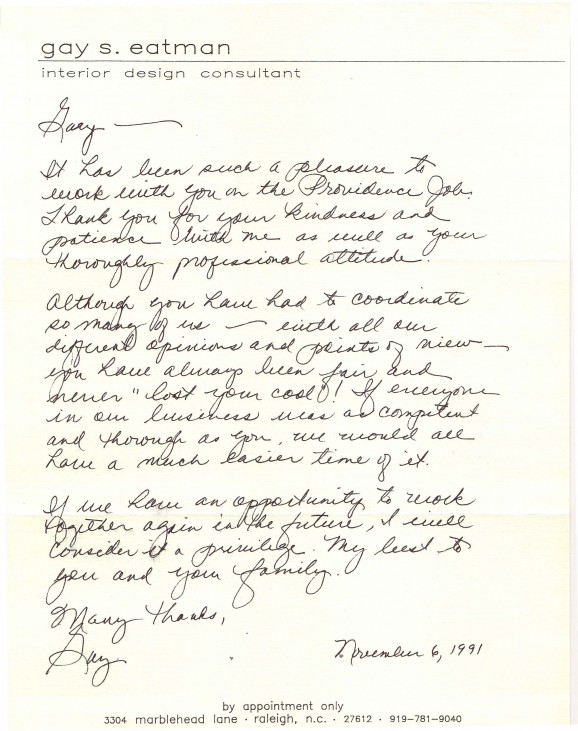 gay s. eatman
interior design consultant
Gary —
It has been such a pleasure to
work with you on the Providence Job.
Thank you for your kindness and
patience with me as well as your
thoroughly professional attitude.
Although you have had to coordinate
so many of us — with all our
different opinions and points of view —
you have always been fair and
never "lost your cool"! If everyone
in our business was as competent
and thorough as you, we would all
have a much easier time of it.
If we have an opportunity to work
together again in the future, I will
consider it a privilege. My best to
you and your family.
Many thanks,
Gay
November 6, 1991
by appointment only
3304 marblehead lane · raleigh, n.c. · 27612 · 919-781-9040